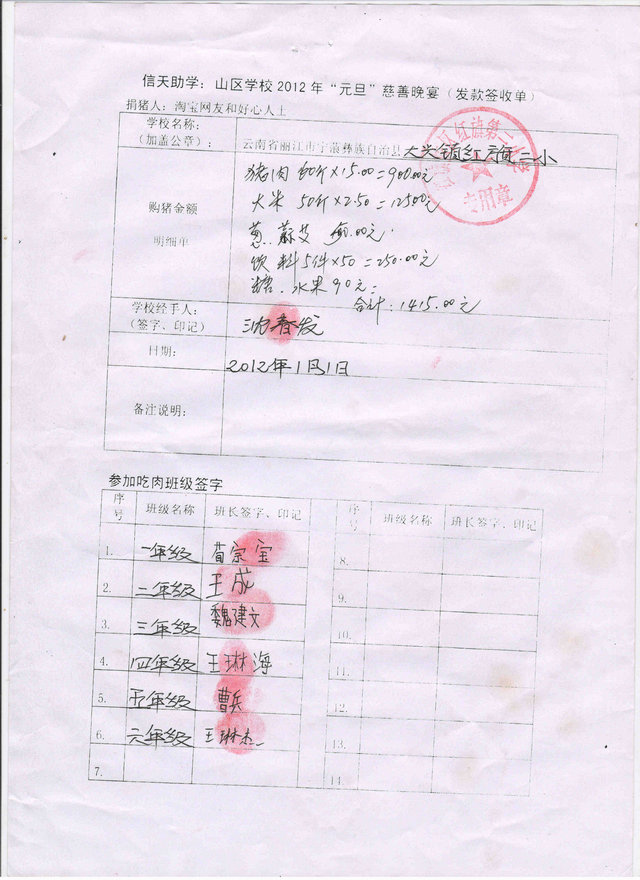 信天助学：山区学校2012年“元旦”慈善晚宴（发款签收单）
捐猪人：淘宝网友和好心人士
学校名称：
（加盖公章）：
云南省丽江市宁蒗彝族自治县大兴镇红旗二小
红旗第二
专用章
购猪金额
明细单
猪肉 60斤×15.00=900.00元
大米 50斤×2.50=12500元
葱.蔴艾 元.
饮料5件×50=250.00元
糖.水果90元=
合计：1415.00元
学校经手人：
（签字、印记）
沈春发
日期：
2012年1月1日
备注说明：
参加吃肉班级签字
序号 班级名称 班长签字、印记 序号 班级名称 班长签字、印记
1. 一年级 荀宗宝 8.
2. 二年级 王成 9.
3. 三年级 魏建文 10.
4. 四年级 王琳海 11.
5. 五年级 曹兵 12.
6. 六年级 王琳杰 13.
7. 14.